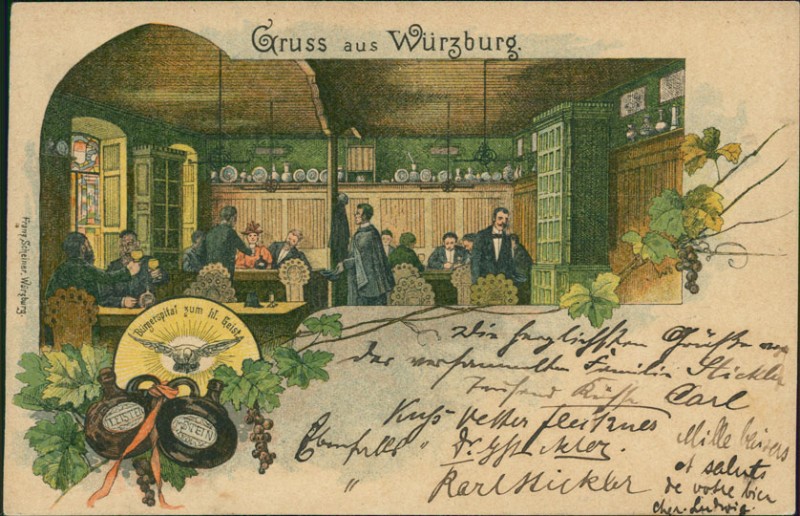 Gruss aus Würzburg.
Franz Scheiner, Würzburg.
Bürgerspital zum hl. Geist
LEISTEN
STEIN
WEIN
Die herzlichsten Grüße von
der versammelten Familie Stickler
tausend Küsse Carl
Kuss Vetter
Ebenfalls " Dr.
" Karl Stickler
Mille baisers
et saluts
de votre bien
cher. Ludwig.